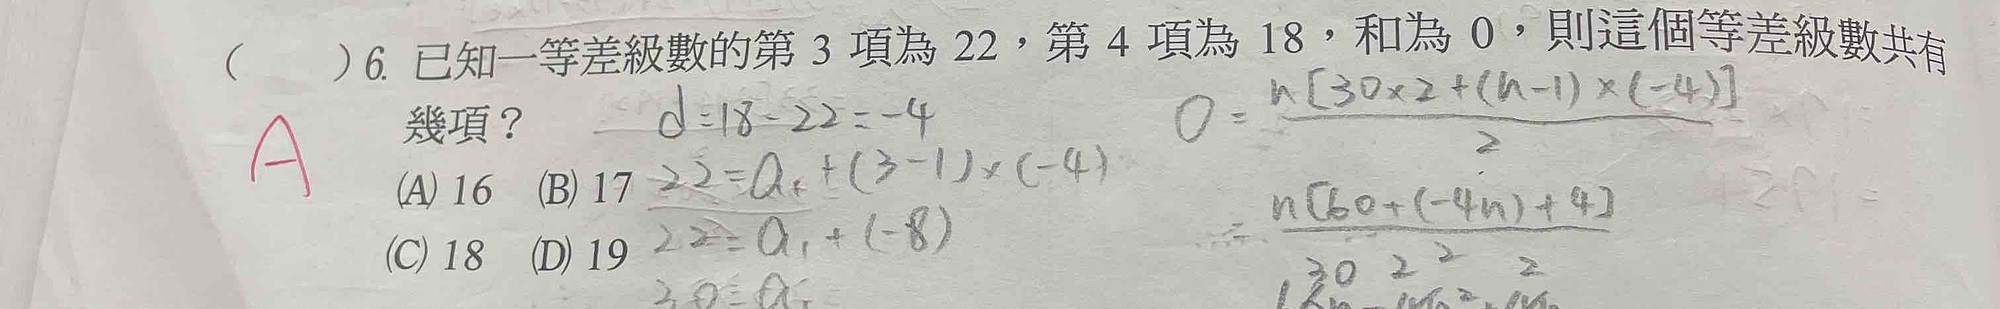 ( )6. 已知一等差級數的第 3 項為 22，第 4 項為 18，和為 0，則這個等差級數共有
幾項？
(A) 16 (B) 17
(C) 18 (D) 19
A
d=18-22=-4
22=a₁+(3-1)×(-4)
22=a₁+(-8)
30=a₁
0=n[30×2+(n-1)×(-4)]/2
=n[60+(-4n)+4]/2